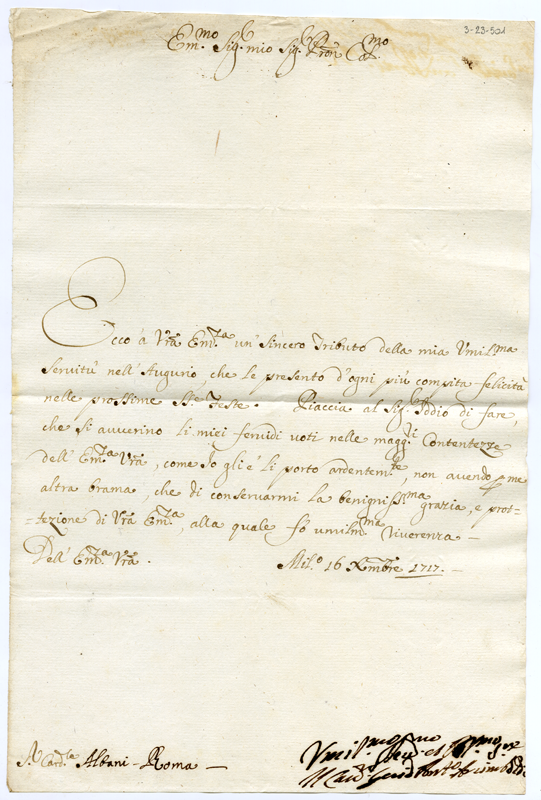 3-23-501
Em.mo Sig.r mio Sig.r Pron Col.mo
Ecco à Vrã Em.za un' sincero Tributo della mia Umil.ma
servitù nell' Augurio, che le presento d'ogni più compita felicità
nelle prossime S.te Feste. Piaccia al Sig.r Iddio di fare,
che si avverino li miei fervidi voti nelle magg.ri Contentezze
dell' Em.za Vrã, come Io gli e li porto ardentem.te, non avendo p me
altra brama, che di conservarmi la benigniss.ma grazia, e prot-
-tezione di Vrã Em.za, alla quale fò umilm.ma Riverenza —
Dell' Em.za Vrã. Mil.o 16 Xmbre 1717. —
Umil.mo
S.r Card.le Albani - Roma —